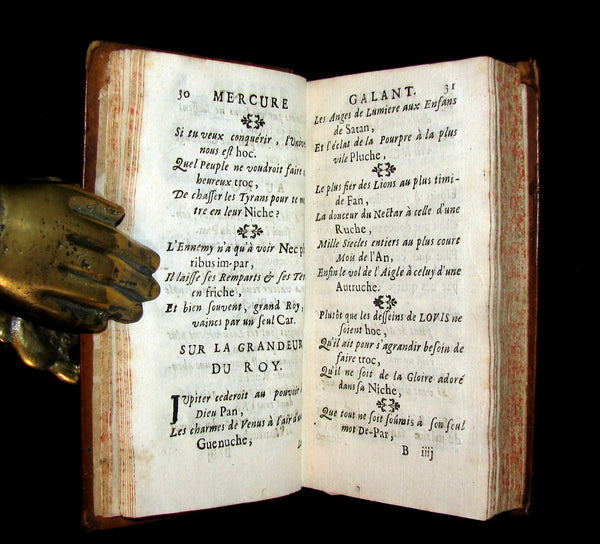 30 MERCURE
Si tu veux conquérir, l'Univers
nous est hoc.
Quel Peuple ne voudroit faire
heureux troc,
De chasser les Tyrans pour te
tre en leur Niche?
L'Ennemy n'a qu'à voir Nec
ribus im-par,
Il laisse ses Remparts & ses
en friche,
Et bien souvent, grand Roy,
vaincs par un seul Car.
SUR LA GRANDEUR
DU ROY.
Jupiter cederoit au pouvoir
Dieu Pan,
Les charmes de Venus à l'air
Guenuche,
GALANT. 31
Les Anges de Lumiere aux Enfans
de Satan,
Et l'éclat de la Pourpre à la plus
vile Pluche,
Le plus fier des Lions au plus timi-
de Fan,
La douceur du Nectar à celle d'une
Ruche,
Mille Siecles entiers au plus court
Mois de l'An,
Enfin le vol de l'Aigle à celuy d'une
Autruche.
Plûtôt que les desseins de LOVIS ne
soient hoc,
Qu'il ait pour s'agrandir besoin de
faire troc,
Qu'il ne soit de la Gloire adoré
dans sa Niche,
Que tout ne soit soûmis à son seul
mot De-Par,
B iiij